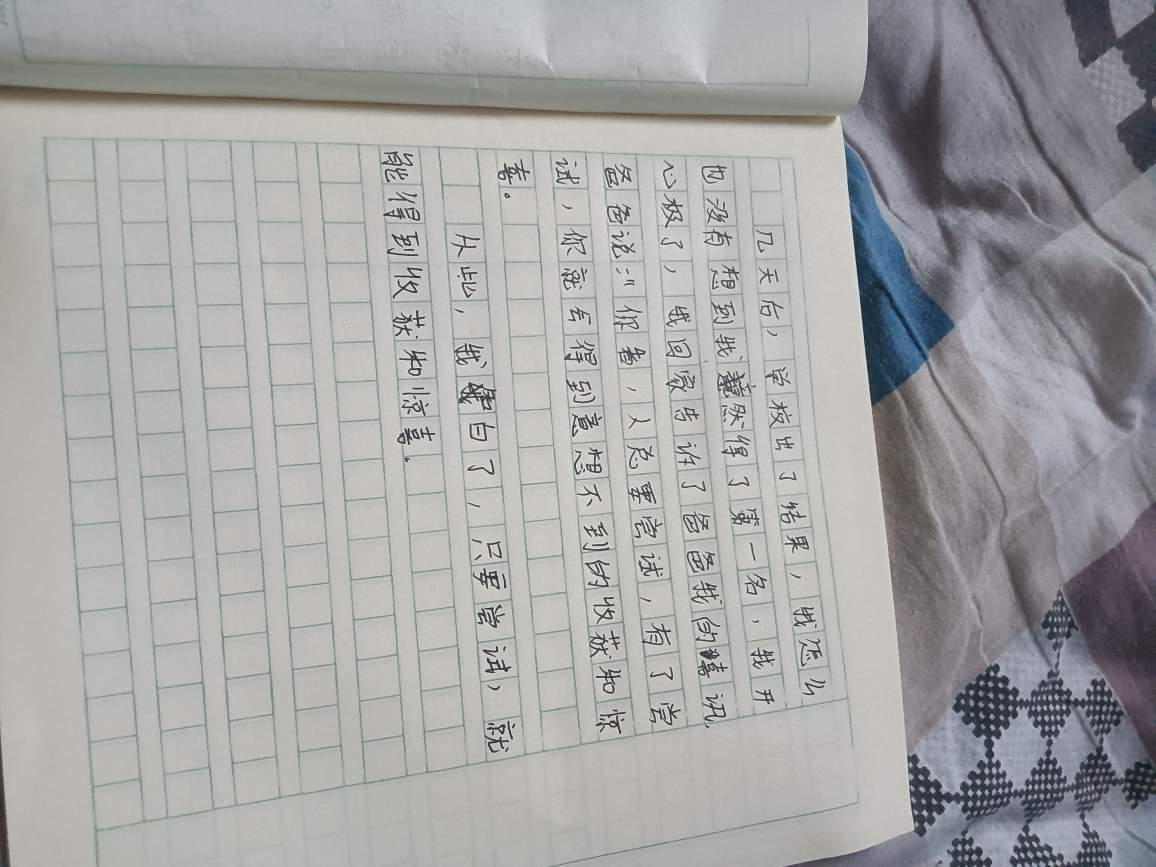 几天后，学校出了结果，我怎么
也没有想到我竟然得了第一名，我开
心极了，我回家告诉了爸爸我的喜讯，
爸爸说：“你看，人总要尝试，有了尝
试，你就会得到意想不到的收获和惊
喜。
从此，我明白了，只要尝试，就
能得到收获和惊喜。